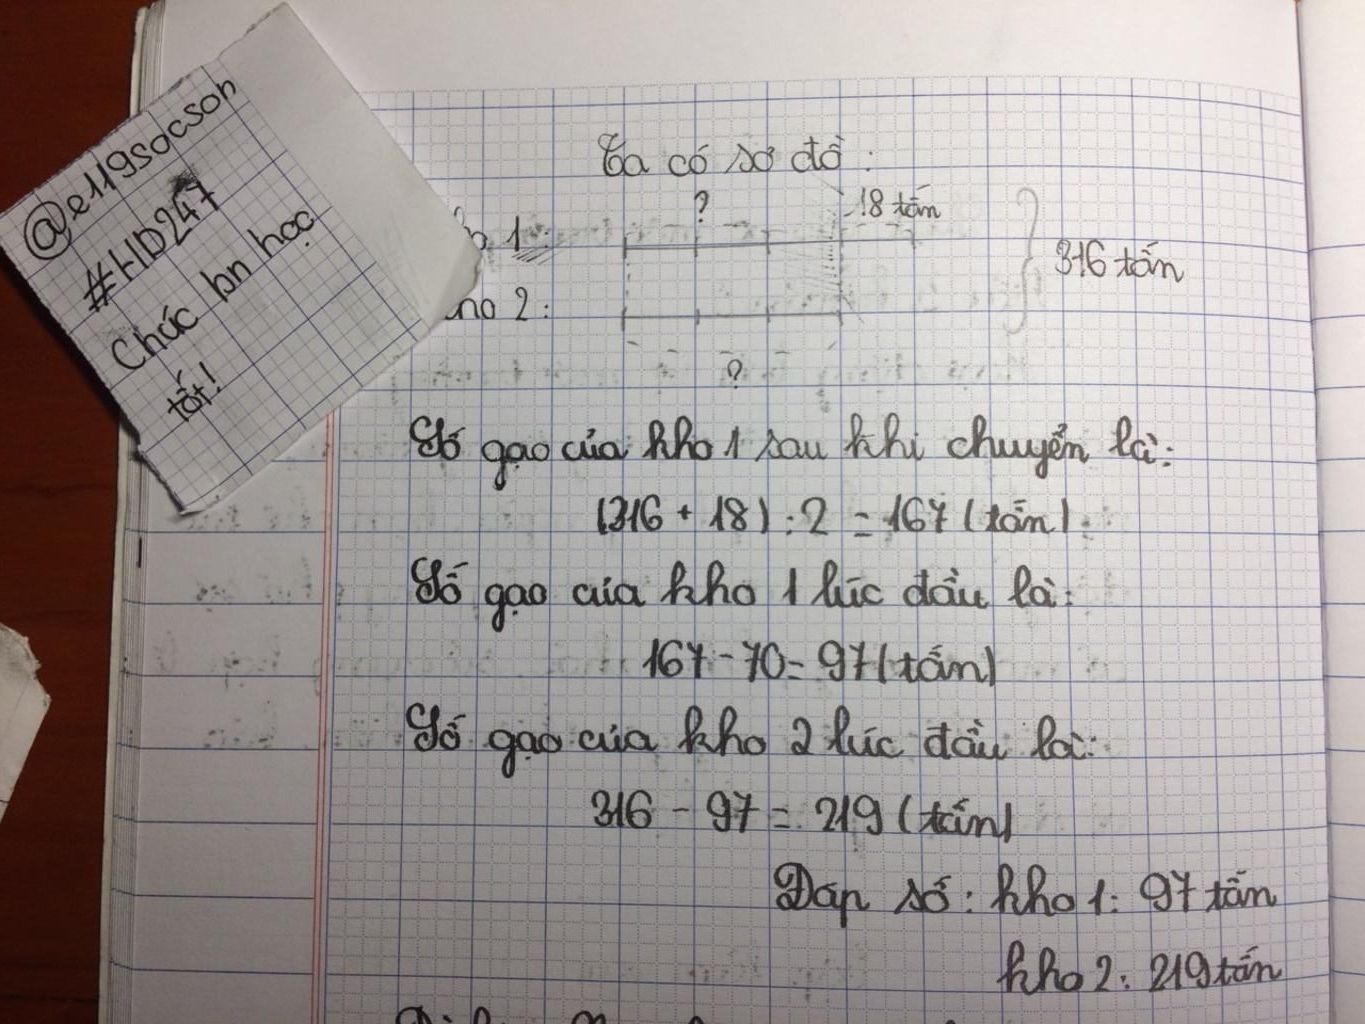 @e119socson
#HD247
Chúc bn học
tốt!
Ta có sơ đồ:
? 18 tấn
1:
316 tấn
kho 2:
?
Số gạo của kho 1 sau khi chuyển là:
(316 + 18) : 2 = 167 (tấn)
Số gạo của kho 1 lúc đầu là:
167 - 70 = 97 (tấn)
Số gạo của kho 2 lúc đầu là:
316 - 97 = 219 (tấn)
Đáp số: kho 1: 97 tấn
kho 2: 219 tấn